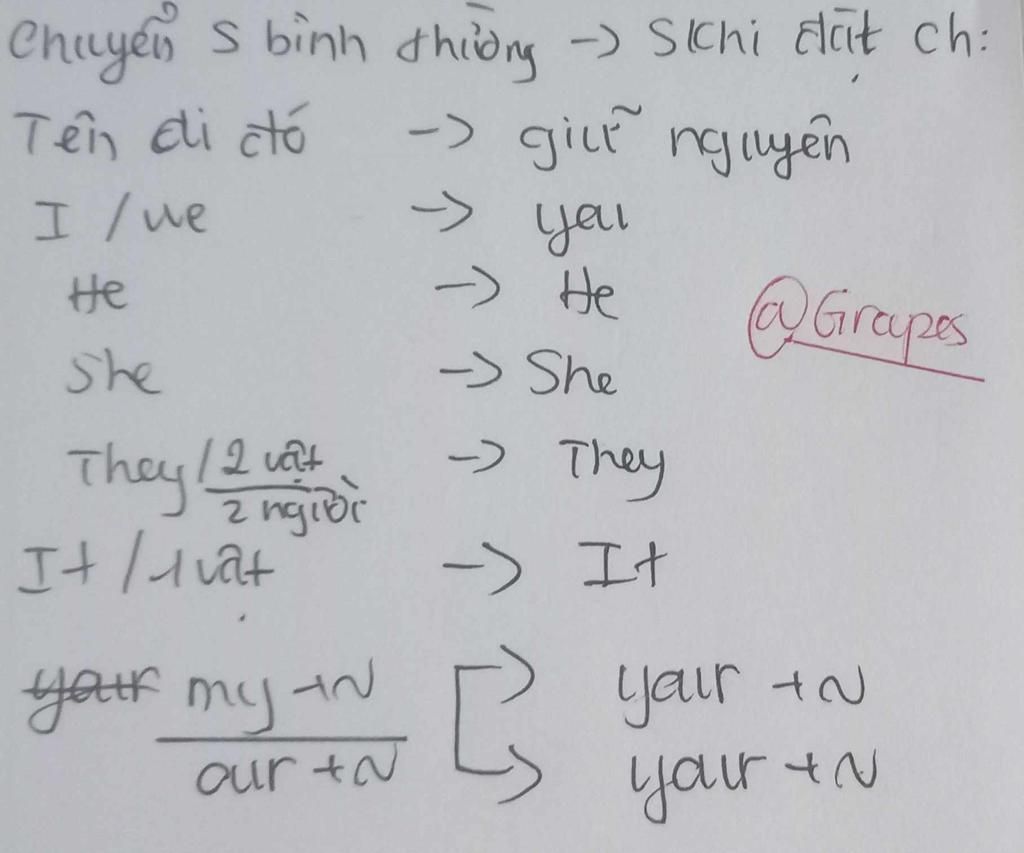 Chuyển S bình thường -> S khi đặt ch:
Tên ai đó -> giữ nguyên
I / we -> you
He -> He
@Grapes
She -> She
They / 2 vật -> They
2 người
It / 1 vật -> It
your my + N -> your + N
our + N -> your + N